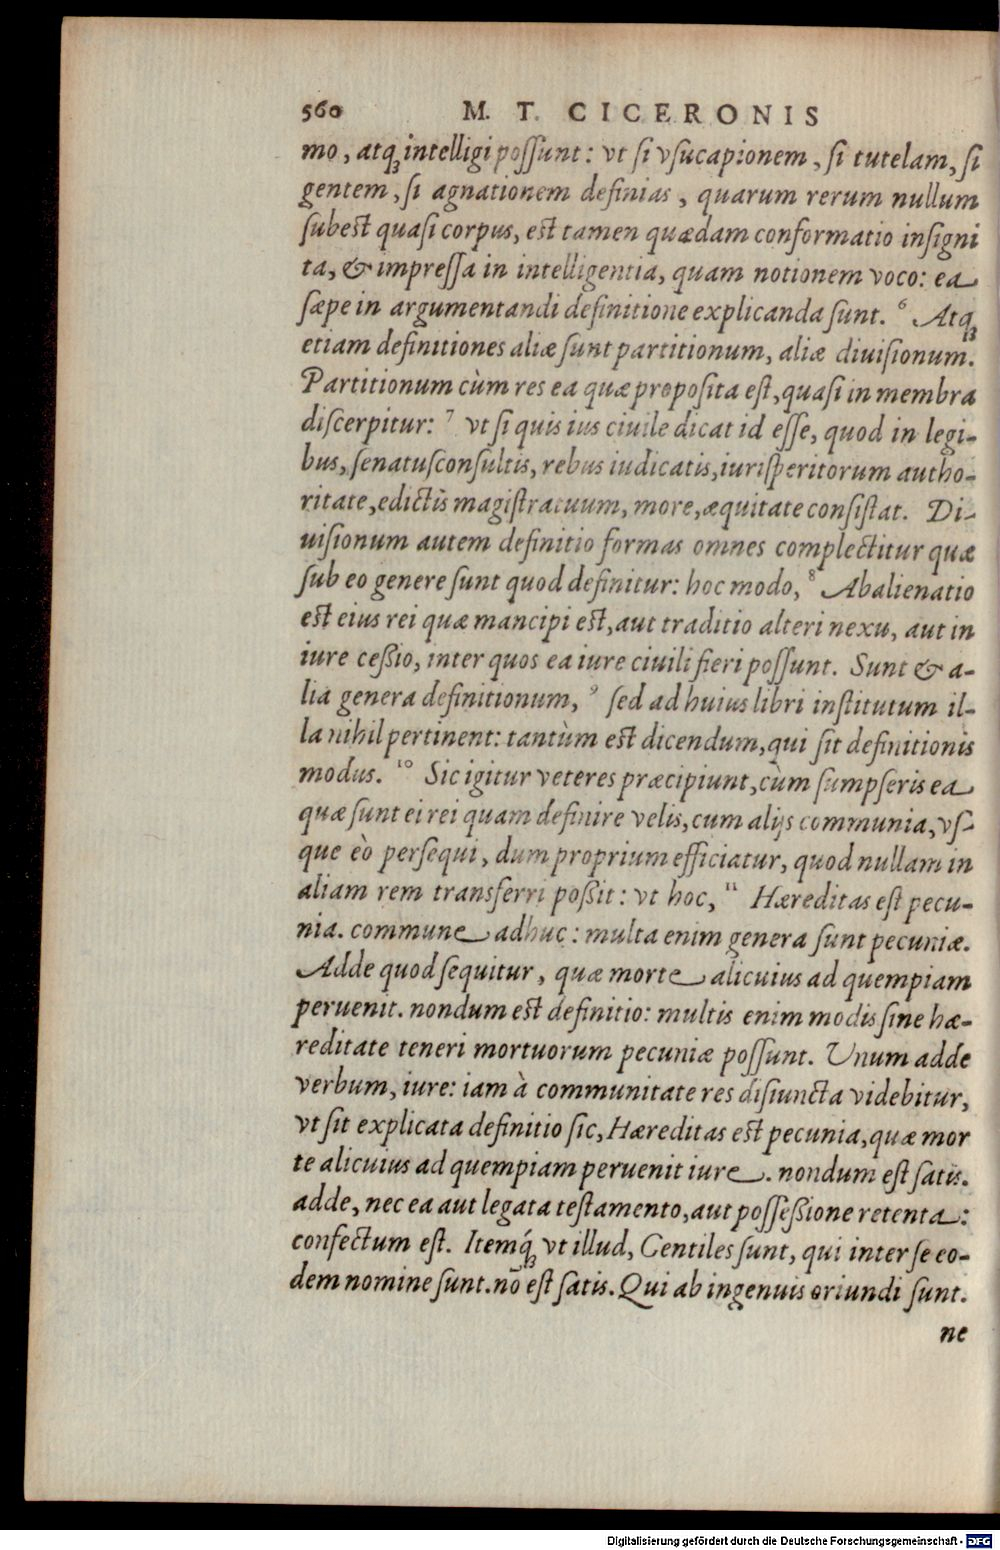 560 M. T. CICERONIS
mo, atq́ꝫ intelligi poſſunt: vt ſi vſucapionem, ſi tutelam, ſi
gentem, ſi agnationem definias, quarum rerum nullum
ſubest quaſi corpus, est tamen quædam conformatio inſigni
ta, & impreſſa in intelligentia, quam notionem voco: ea
ſæpe in argumentandi definitione explicanda ſunt. ⁶ Atqꝫ
etiam definitiones aliæ ſunt partitionum, aliæ diuiſionum.
Partitionum cùm res ea quæ propoſita eſt, quaſi in membra
diſcerpitur: ⁷ vt ſi quis ius ciuile dicat id eſſe, quod in legi-
bus, ſenatuſconſultis, rebus iudicatis, iuriſperitorum autho-
ritate, edictis magiſtratuum, more, æquitate conſiſtat. Di-
uiſionum autem definitio formas omnes complectitur quæ
ſub eo genere ſunt quod definitur: hoc modo, ⁸ Abalienatio
est eius rei quæ mancipi est, aut traditio alteri nexu, aut in
iure ceßio, inter quos ea iure ciuili fieri poſſunt. Sunt & a-
lia genera definitionum, ⁹ ſed ad huius libri inſtitutum il-
la nihil pertinent: tantùm est dicendum, qui ſit definitionis
modus. ¹⁰ Sic igitur veteres præcipiunt, cùm ſumpſeris ea
quæ ſunt ei rei quam definire velis, cum alijs communia, vſ-
que eò perſequi, dum proprium efficiatur, quod nullam in
aliam rem transferri poßit: vt hoc, ¹¹ Hæreditas eſt pecu-
nia. commune adhuc: multa enim genera ſunt pecuniæ.
Adde quod ſequitur, quæ morte alicuius ad quempiam
peruenit. nondum est definitio: multis enim modis ſine hæ-
reditate teneri mortuorum pecuniæ poſſunt. Unum adde
verbum, iure: iam à communitate res diſiuncta videbitur,
vt ſit explicata definitio ſic, Hæreditas est pecunia, quæ mor
te alicuius ad quempiam peruenit iure. nondum eſt ſatis.
adde, nec ea aut legata teſtamento, aut poſſeßione retenta:
confectum eſt. Itemq́ꝫ vt illud, Gentiles ſunt, qui inter ſe eo-
dem nomine ſunt. nō eſt ſatis. Qui ab ingenuis oriundi ſunt.
ne
Digitalisierung gefördert durch die Deutsche Forschungsgemeinschaft - DFG